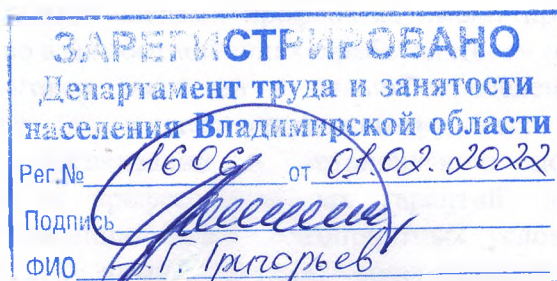 ЗАРЕГИСТРИРОВАНО
Департамент труда и занятости
населения Владимирской области
Рег.№ 11606 от 01.02.2022
Подпись
ФИО Г. Григорьев